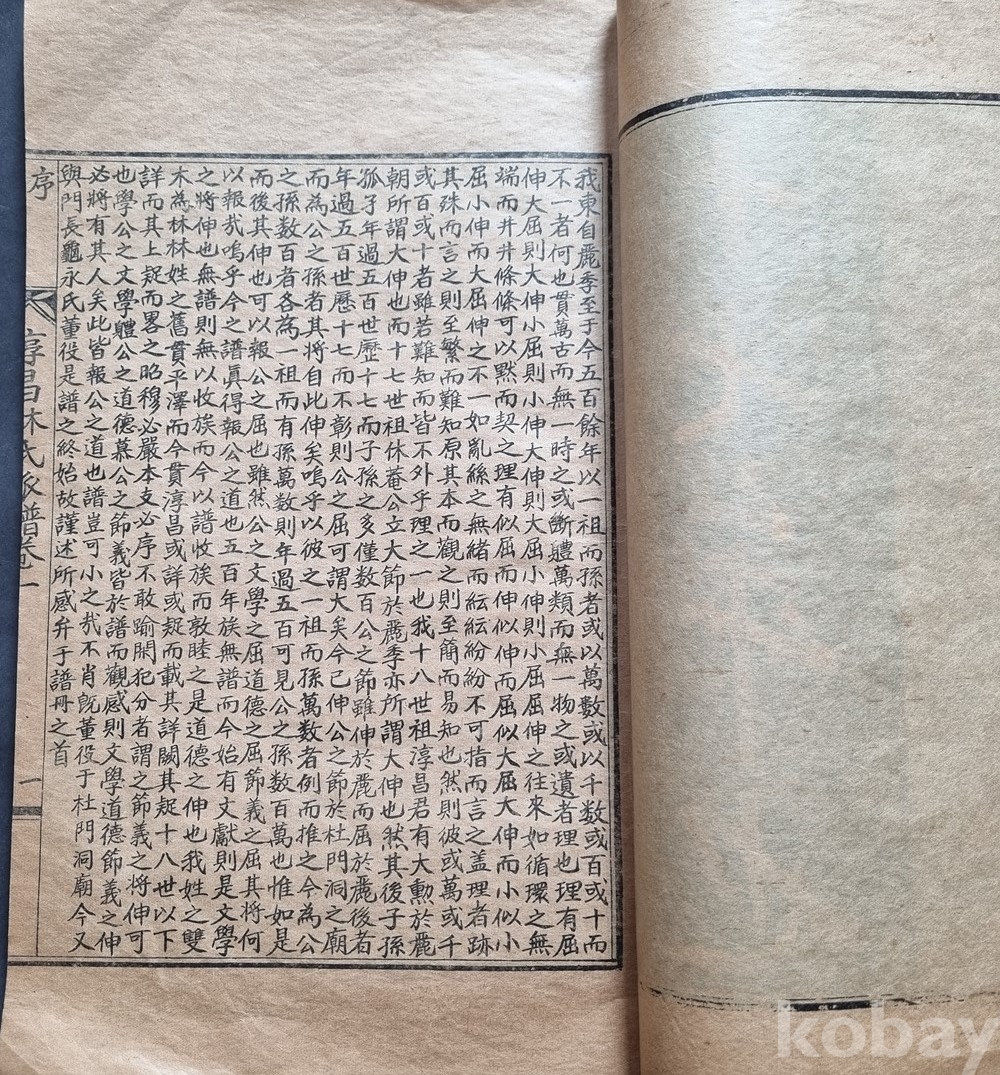 我東自麗季至于今五百餘年以一祖而孫者或以萬數或以千数或百或十而
不一者何也貫萬古而無一時之或斷體萬類而無一物之或遺者理也理有屈
伸大屈則大伸小屈則小伸大伸則大屈小伸則小屈屈伸之往來如循環之無
端而井井條條可以黙而契之理有似屈而伸似伸而屈似大屈大伸而小似小
屈小伸而大屈伸之不一如亂絲之無緒而紜紜紛紛不可指而言之盖理者跡
其殊而言之則至繁而難知原其本而觀之則至簡而易知也然則彼或萬或千
或百或十者雖若難知而皆不外乎理之一也我十八世祖淳昌君有大勲於麗
朝所謂大伸也而十七世祖休菴公立大節於麗季亦所謂大伸也然其後子孫
孤孑年過五百世歷十七而子孫之多僅数百公之節雖伸於麗而屈於麗後者
年過五百世歷十七而不彰則公之屈可謂大矣今已伸公之節於杜門洞之廟
而為公之孫者其將自此伸矣嗚乎以彼之一祖而孫萬数者例而推之今為公
之孫数百者各為一祖而有孫萬数則年過五百可見公之孫数百萬也惟如是
而後其伸也可以報公之屈也雖然公之文學之屈道德之屈節義之屈其將何
以報㦲嗚乎今之譜眞得報公之道也五百年族無譜而今始有文獻則是文學
之將伸也無譜則無以收族而今以譜收族而敦睦之是道德之伸也我姓之雙
木為林林姓之舊貫平澤而今貫淳昌或詳或疑而載其詳闕其疑十八世以下
詳而其上疑而畧之昭穆必嚴本支必序不敢踰閑犯分者謂之節義之將伸可
也學公之文學體公之道德慕公之節義皆於譜而觀感則文學道德節義之伸
必將有其人矣此皆報公之道也譜豈可小之㦲不肖旣董役于杜門洞廟今又
與門長龜永氏董役是譜之終始故謹述所感弁于譜冊之首
序
淳昌林氏派譜卷一
序
一
kobay